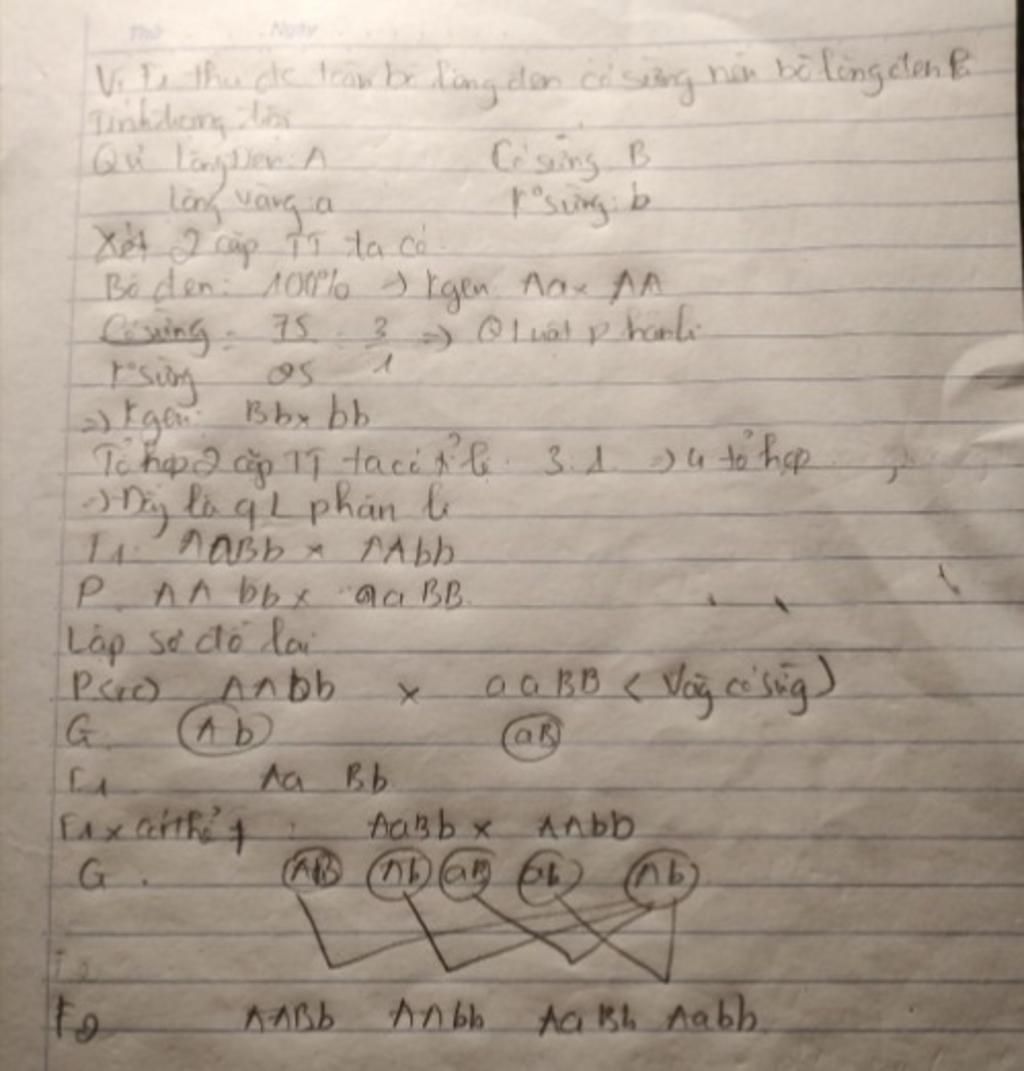 Thứ Ngày
Vì F1 thu đc toàn bò lông đen có sừng nên bò lông đen
tính trạng
Qui lông đen: A Có sừng B
lông vàng: a k° sừng: b
Xét 2 cặp TT ta có
Bò đen: 100% → kgen Aa x AA
Có sừng = 75 = 3 => Q luật phân li
k° sừng 25 1
=> kgen: Bb x bb
Tổ hợp 2 cặp TT ta có tỉ lệ 3.1 → 4 tổ hợp
→ Đây là qL phân li
F1. AaBb x AAbb
P AA bb x aa BB
Lập sơ đồ lai
P(tc) AAbb x aaBB (Vàg có sừg)
G. Ab aB
F1 Aa Bb
F1 x cá thể : AaBb x AAbb
G. AB Ab aB ab Ab
F2
F2 AABb AAbb AaBb Aabb